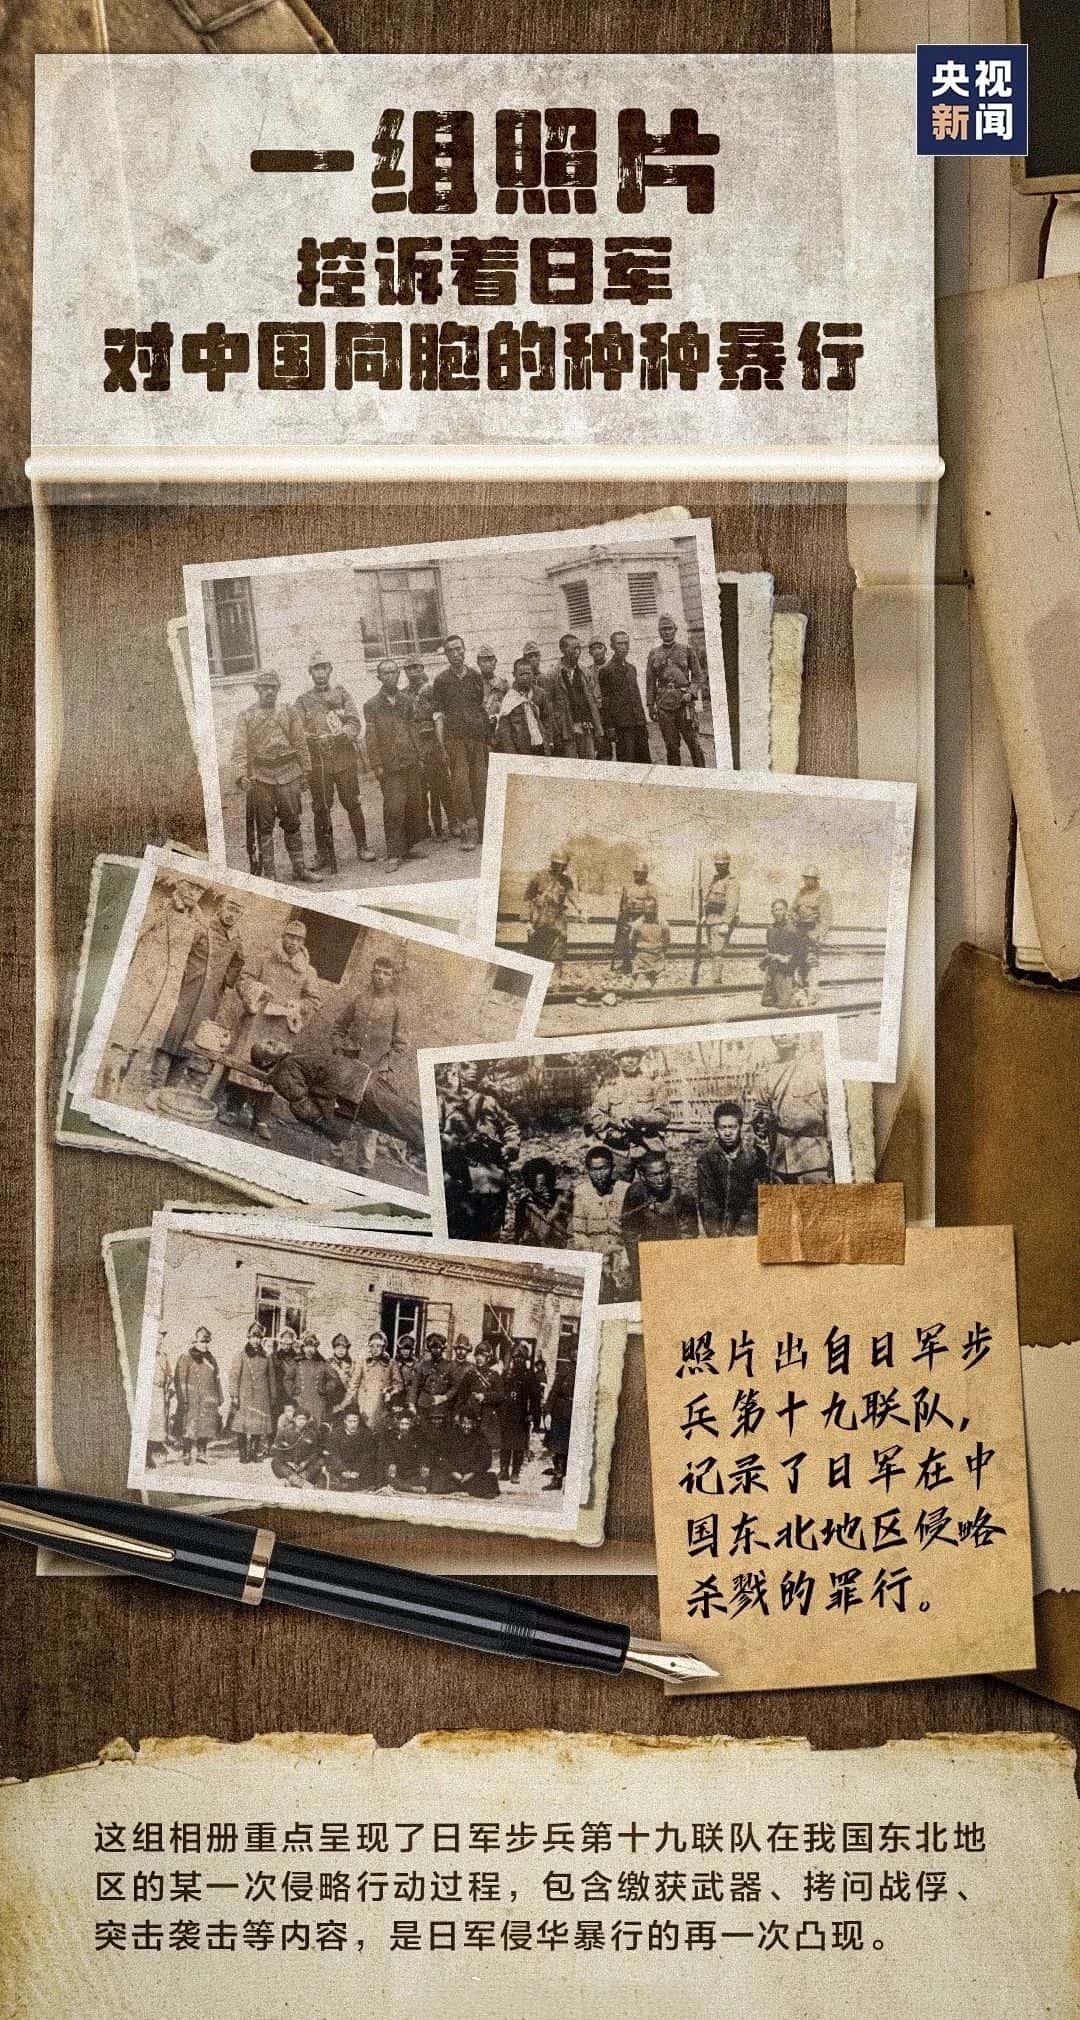 央视
新闻
一组照片
控诉着日军
对中国同胞的种种暴行
照片出自日军步
兵第十九联队，
记录了日军在中
国东北地区侵略
杀戮的罪行。
这组相册重点呈现了日军步兵第十九联队在我国东北地
区的某一次侵略行动过程，包含缴获武器、拷问战俘、
突击袭击等内容，是日军侵华暴行的再一次凸现。